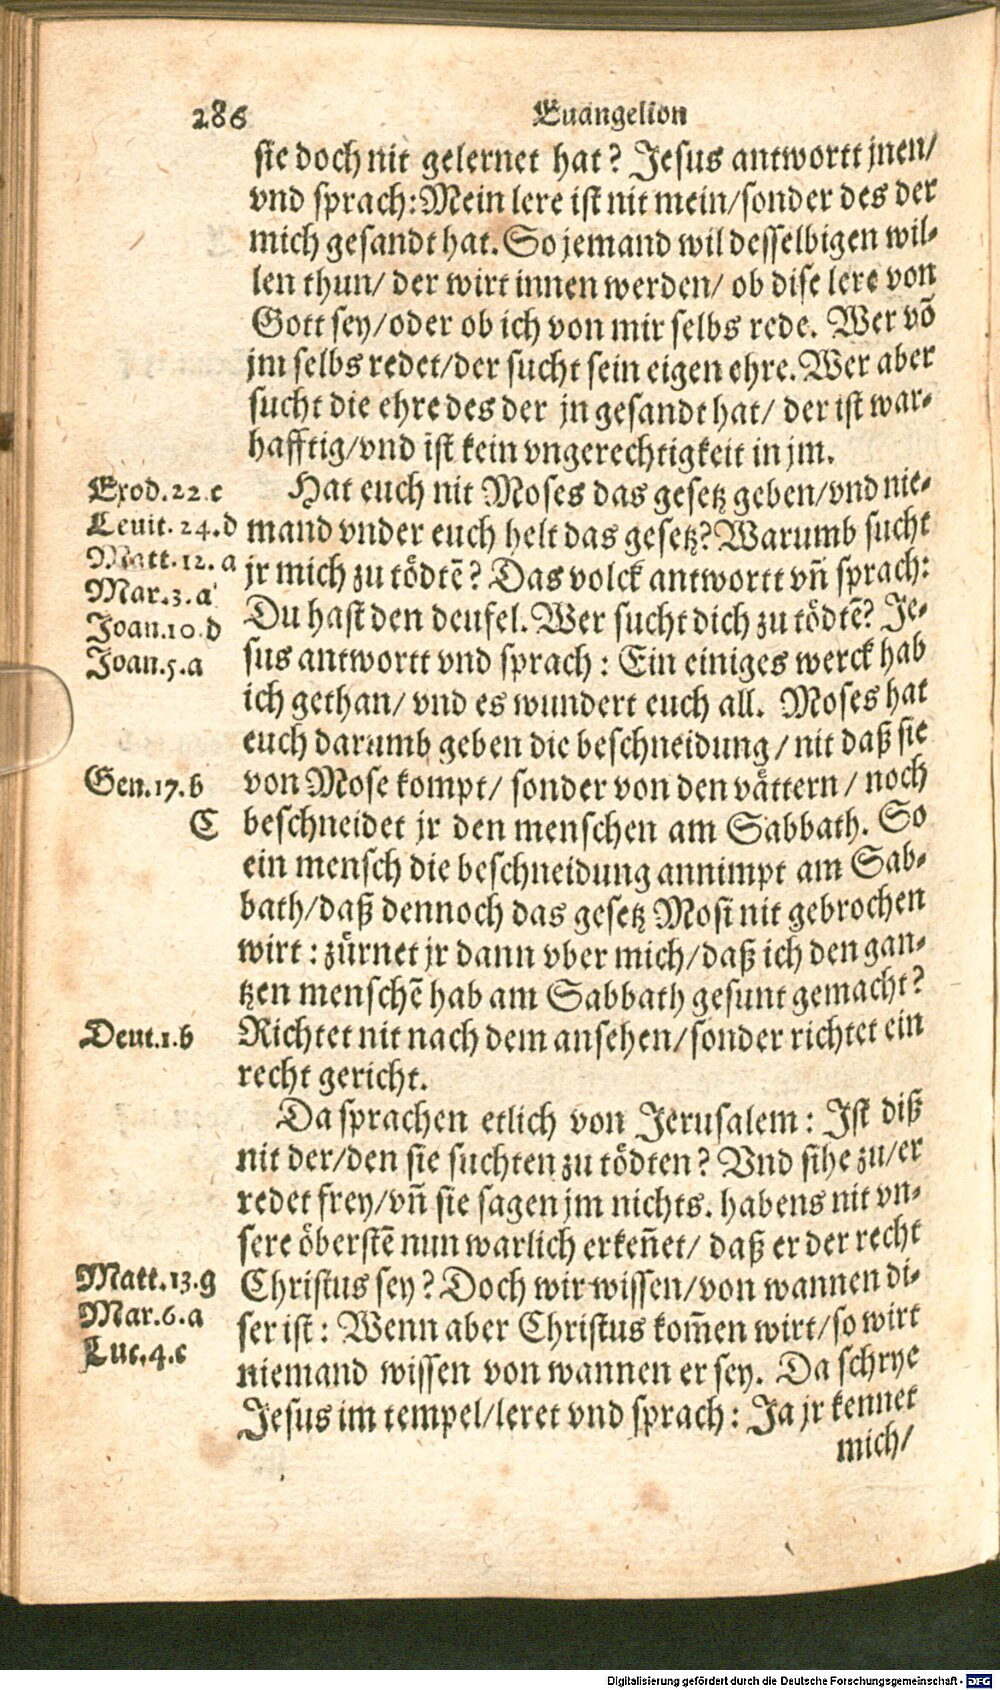 286
Euangelion
sie doch nit gelernet hat? Jesus antwortt jnen/
vnd sprach: Mein lere ist nit mein/sonder des der
mich gesandt hat. So jemand wil desselbigen wil-
len thun/ der wirt innen werden/ ob dise lere von
Gott sey/oder ob ich von mir selbs rede. Wer võ
jm selbs redet/der sucht sein eigen ehre. Wer aber
sucht die ehre des der jn gesandt hat/ der ist war-
hafftig/vnd ist kein vngerechtigkeit in jm.
Exod.22.c
Leuit.24.d
Matt.12.a
Mar.3.a
Joan.10.d
Joan.5.a
Hat euch nit Moses das gesetz geben/vnd nie-
mand vnder euch helt das gesetz? Warumb sucht
jr mich zu tödtẽ? Das volck antwortt vñ sprach:
Du hast den deufel. Wer sucht dich zu tödtẽ? Je-
sus antwortt vnd sprach: Ein einiges werck hab
ich gethan/ vnd es wundert euch all. Moses hat
euch darumb geben die beschneidung/ nit daß sie
Gen.17.b
von Mose kompt/ sonder von den vättern/ noch
C
beschneidet jr den menschen am Sabbath. So
ein mensch die beschneidung annimpt am Sab-
bath/daß dennoch das gesetz Mosi nit gebrochen
wirt: zürnet jr dann vber mich/daß ich den gan-
tzen menschẽ hab am Sabbath gesunt gemacht?
Deut.1.b
Richtet nit nach dem ansehen/sonder richtet ein
recht gericht.
Da sprachen etlich von Jerusalem: Ist diß
nit der/den sie suchten zu tödten? Vnd sihe zu/er
redet frey/vñ sie sagen jm nichts. habens nit vn-
sere öberstẽ nun warlich erkeñet/ daß er der recht
Matt.13.g
Mar.6.a
Luc.4.c
Christus sey? Doch wir wissen/von wannen di-
ser ist: Wenn aber Christus kom̃en wirt/so wirt
niemand wissen von wannen er sey. Da schrye
Jesus im tempel/leret vnd sprach: Ja jr kennet
mich/
Digitalisierung gefördert durch die Deutsche Forschungsgemeinschaft - DFG